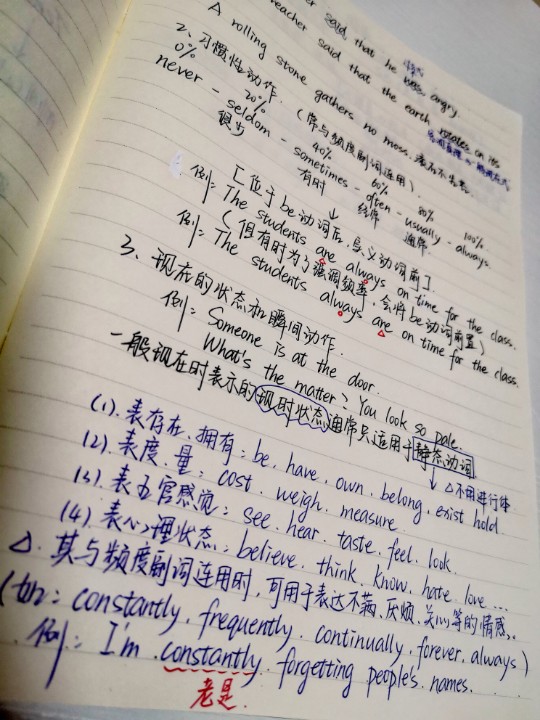 er said that he was angry.
eacher said that the earth rotates on its
A rolling stone gathers no moss. 滚石不生苔.
2、习惯性动作. (常与频度副词连用).
0% 20% 40% 60% 80% 100%
never - seldom - sometimes - often - usually - always
很少 有时 经常 通常
[位于be动词后, 实义动词前].
例: The students are always on time for the class.
(但有时为了强调频率, 会将be动词前置)
例: The students always are on time for the class.
3、现在的状态和瞬间动作.
例: Someone is at the door.
What's the matter? You look so pale.
一般现在时表示的现时状态通常只适用于静态动词
△不用进行体
(1). 表存在、拥有: be. have. own. belong. exist hold
(2). 表度、量: cost. weigh. measure
(3). 表五官感觉: see. hear. taste. feel. look
(4). 表心理状态: believe. think. know. hate love...
△. 其与频度副词连用时, 可用于表达不满、厌烦、关心等的情感.
(如: constantly. frequently. continually. forever. always)
例: I'm constantly forgetting people's names.
老是.